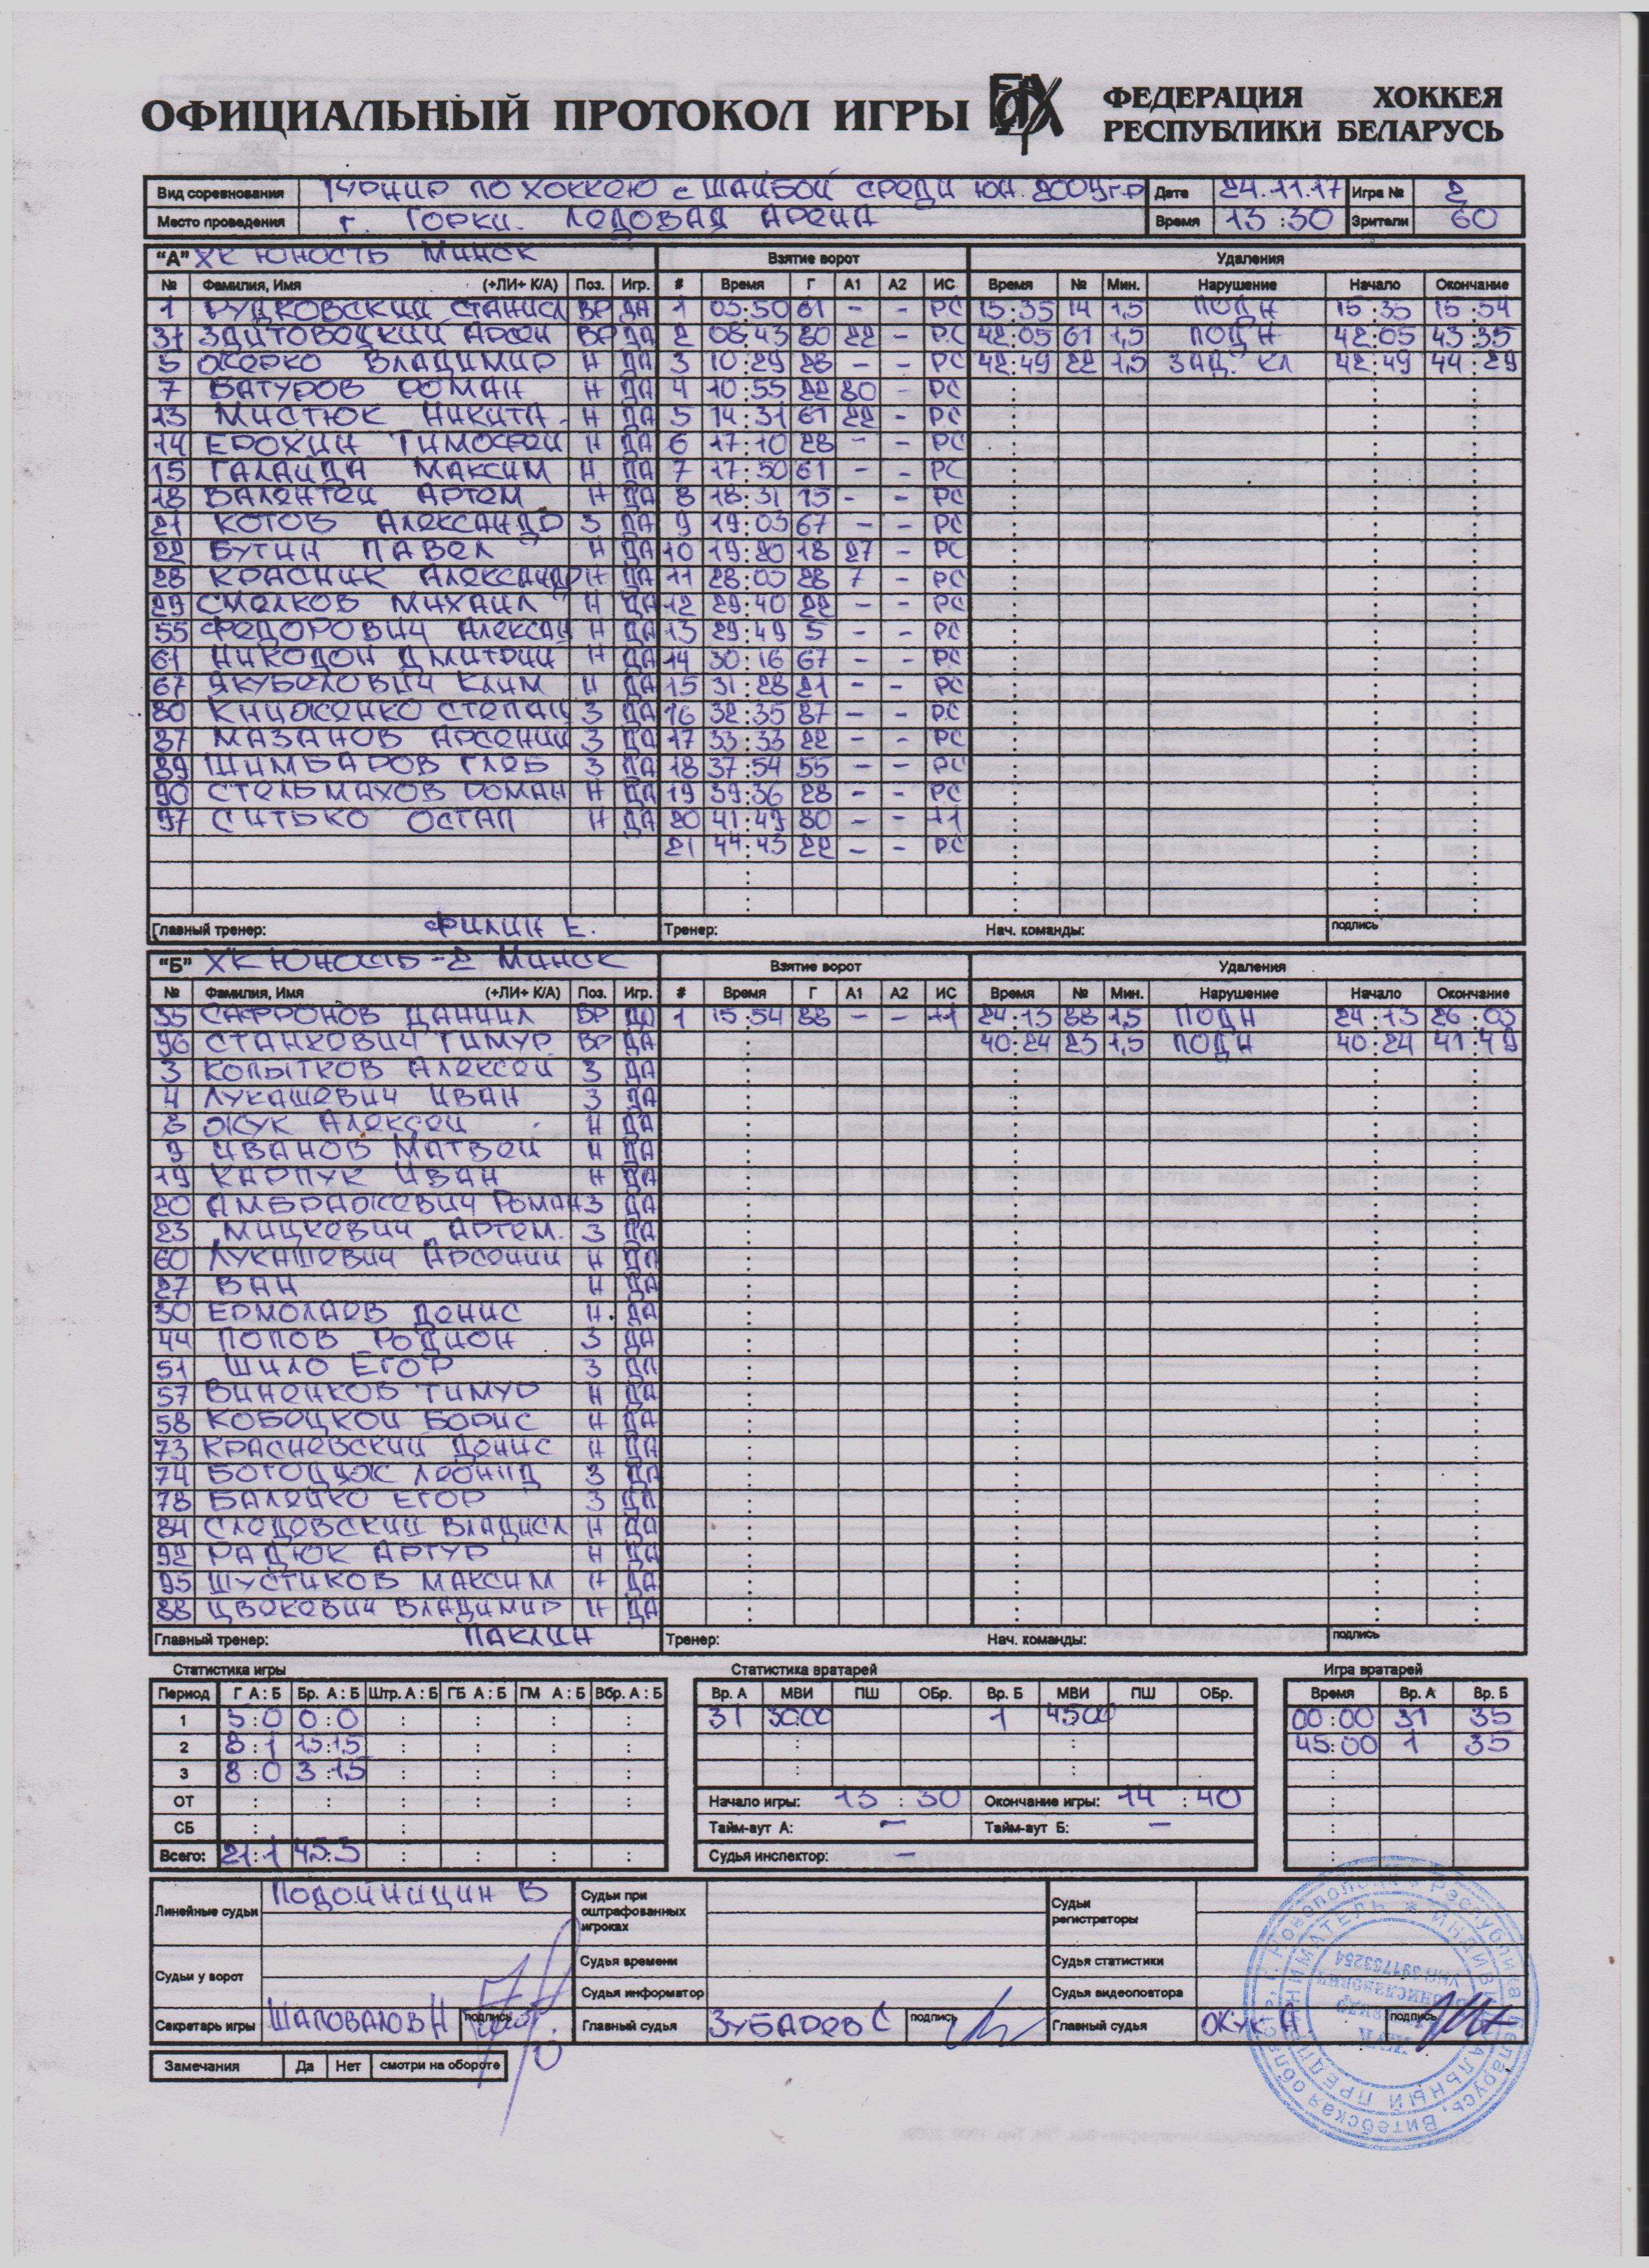 ОФИЦИАЛЬНЫЙ ПРОТОКОЛ ИГРЫ ФЕДЕРАЦИЯ ХОККЕЯ
РЕСПУБЛИКИ БЕЛАРУСЬ
Вид соревнования ТУРНИР ПО ХОККЕЮ с ШАЙБОЙ СРЕДИ ЮН. 2009г.р Дата 24.11.17 Игра № 2
Место проведения г. ГОРКИ. ЛЕДОВАЯ АРЕНА Время 13:30 Зрители 60
"А" ХК ЮНОСТЬ МИНСК Взятие ворот Удаления
№ Фамилия, Имя (+ЛИ+ К/А) Поз. Игр. # Время Г А1 А2 ИС Время № Мин. Нарушение Начало Окончание
1 РУДКОВСКИЙ СТАНИСЛ ВР ДА 1 03:50 61 - - РС 15:35 14 1,5 ПОДН 15:35 15:54
31 ЗДИТОВЕЦКИЙ АРСЕН ВР ДА 2 08:43 80 22 - РС 42:05 61 1,5 ПОДН 42:05 43:35
5 ОЖЕРКО ВЛАДИМИР Н ДА 3 10:29 28 - - РС 42:49 22 1,5 ЗАД. КЛ 42:49 44:29
7 БАТУРОВ РОМАН Н ДА 4 10:55 22 80 - РС
13 МИСТЮК НИКИТА Н ДА 5 14:31 61 22 - РС
14 ЕРОХИН ТИМОФЕЙ Н ДА 6 17:10 28 - - РС
15 ГАЛАЙДА МАКСИМ Н ДА 7 17:50 61 - - РС
18 ВАЛЕНТЕЙ АРТЕМ Н ДА 8 18:31 15 - - РС
21 КОТОВ АЛЕКСАНДР З ДА 9 19:03 67 - - РС
22 БУТИН ПАВЕЛ Н ДА 10 19:20 18 27 - РС
28 КРАСНИК АЛЕКСАНДР Н ДА 11 28:03 28 7 - РС
29 СМЕЛКОВ МИХАИЛ Н ДА 12 29:40 22 - - РС
55 ФЕДОРОВИЧ АЛЕКСАН Н ДА 13 29:49 5 - - РС
61 НИКОДОН ДМИТРИЙ Н ДА 14 30:16 67 - - РС
67 ЯКУБЕЛОВИЧ КЛИМ Н ДА 15 31:28 21 - - РС
80 КНИЖЕНКО СТЕПАН З ДА 16 32:35 87 - - РС
87 МАЗАНОВ АРСЕНИЙ З ДА 17 33:33 22 - - РС
89 ШИМБАРОВ ГЛЕБ З ДА 18 37:54 55 - - РС
90 СТЕЛЬМАХОВ РОМАН Н ДА 19 39:36 28 - - РС
97 СИТЬКО ОСТАП Н ДА 20 41:49 80 - - +1
21 44:43 22 - - РС
Главный тренер: ФИЛИН Е. Тренер: Нач. команды: подпись
"Б" ХК ЮНОСТЬ-2 МИНСК Взятие ворот Удаления
№ Фамилия, Имя (+ЛИ+ К/А) Поз. Игр. # Время Г А1 А2 ИС Время № Мин. Нарушение Начало Окончание
35 САФРОНОВ ДАНИИЛ ВР ДА 1 15:54 88 - - +1 24:13 88 1,5 ПОДН 24:13 26:03
96 СТАНКЕВИЧ ТИМУР ВР ДА 40:24 23 1,5 ПОДН 40:24 41:49
3 КОПЫТКОВ АЛЕКСЕЙ З ДА
4 ЛУКАШЕВИЧ ИВАН З ДА
8 ЖУК АЛЕКСЕЙ Н ДА
9 ИВАНОВ МАТВЕЙ Н ДА
19 КАРПУК ИВАН Н ДА
20 АМБРАЖЕВИЧ РОМАН З ДА
23 МИЦКЕВИЧ АРТЕМ. З ДА
60 ЛУКАШЕВИЧ АРСЕНИЙ Н ДА
27 ВАН Н ДА
30 ЕРМОЛАЕВ ДЕНИС Н. ДА
44 ПОПОВ РОДИОН З ДА
51 ШИЛО ЕГОР З ДА
57 ВИНЕНКОВ ТИМУР Н ДА
58 КОБЕЦКОЙ БОРИС Н ДА
73 КРАСНЕВСКИЙ ДЕНИС Н ДА
74 БОГОДЯЖ ЛЕОНИД З ДА
78 БАЛЕЙКО ЕГОР З ДА
84 СЛЕДЕВСКИЙ ВЛАДИСЛ Н ДА
92 РАДЮК АРТУР Н ДА
95 ШУСТИКОВ МАКСИМ Н ДА
88 ЦВЕКЕВИЧ ВЛАДИМИР Н ДА
Главный тренер: ПАКЛИН Тренер: Нач. команды: подпись
Статистика игры Статистика вратарей Игра вратарей
Период Г А : Б Бр. А : Б Штр. А : Б ГБ А : Б ГМ А : Б Вбр. А : Б Вр. А МВИ ПШ ОБр. Вр. Б МВИ ПШ ОБр. Время Вр. А Вр. Б
1 5:0 0:0 31 30:00 1 45:00 00:00 31 35
2 8:1 1,5:1,5 45:00 1 35
3 8:0 3:1,5
ОТ Начало игры: 13:30 Окончание игры: 14:40
СБ Тайм-аут А: - Тайм-аут Б: -
Всего: 21:1 4,5:3 Судья инспектор: -
Линейные судьи ПОДОЙНИЦИН В Судьи при оштрафованных игроках Судьи регистраторы
Судьи у ворот Судья времени Судья статистики
Судья информатор Судья видеоповтора
Секретарь игры ШАПОВАЛОВ Н подпись Главный судья ЗУБАРЕВ С подпись Главный судья ЖУК А подпись
Замечания Да Нет смотри на обороте